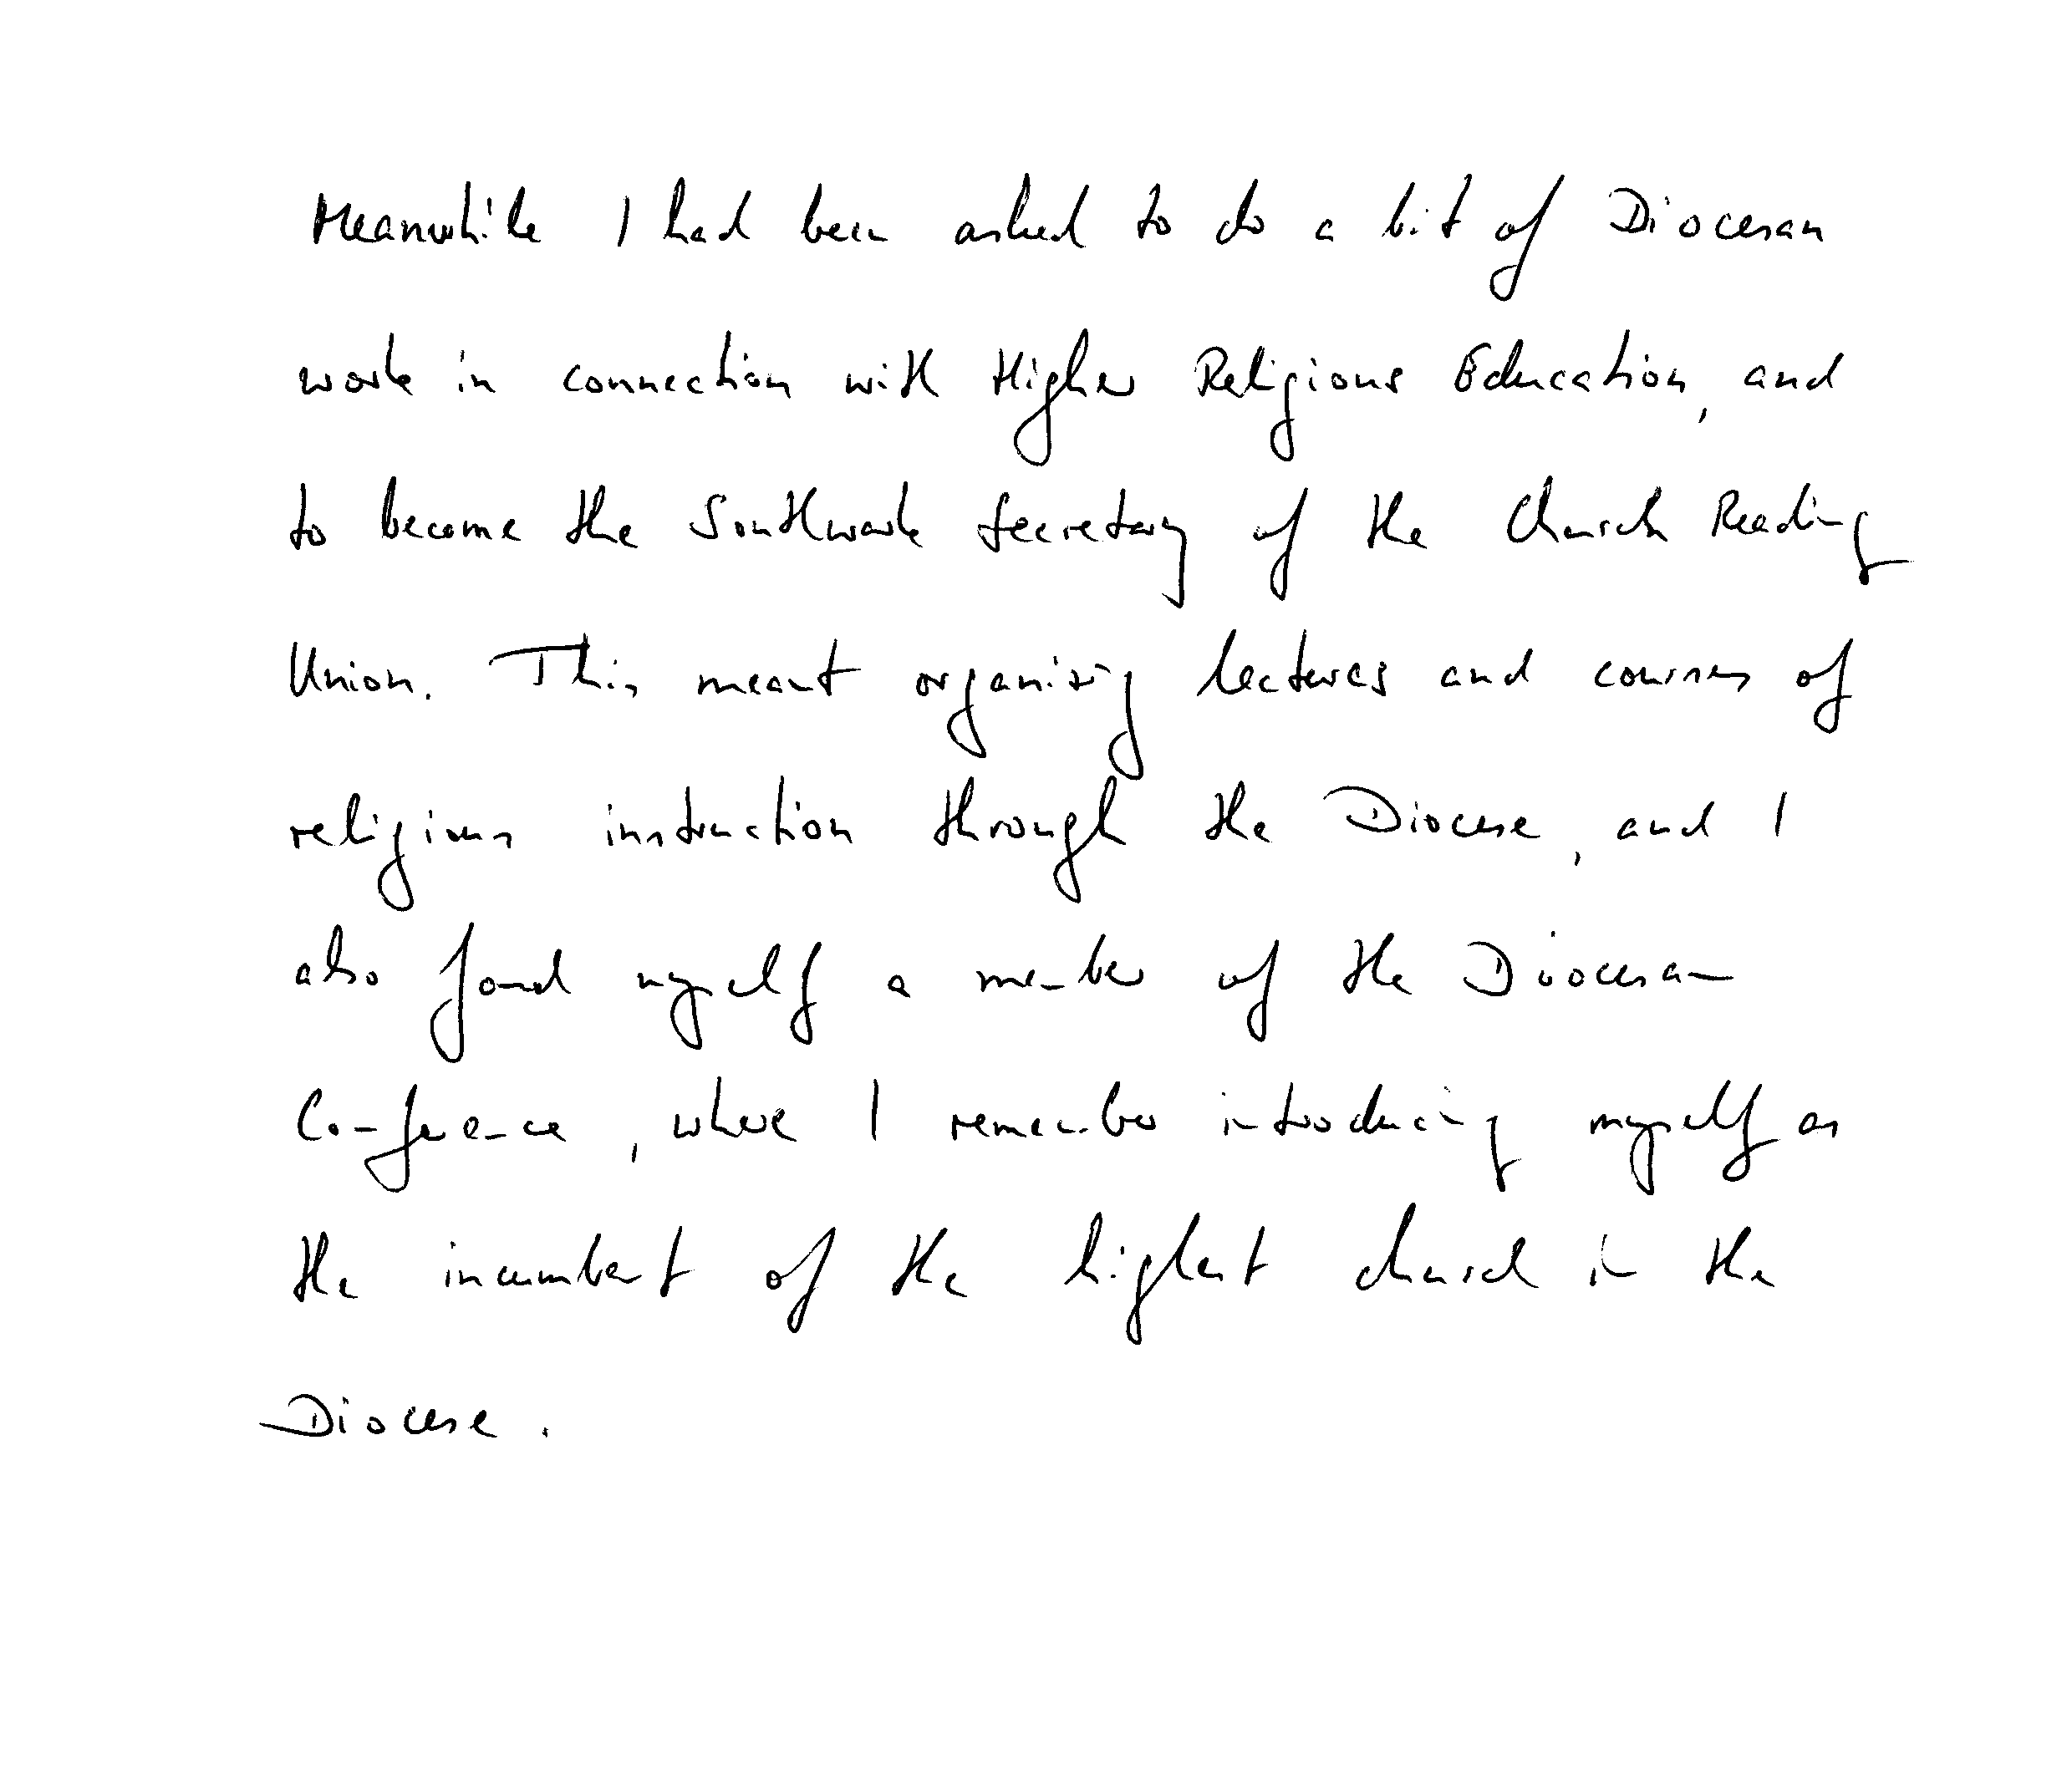 Meanwhile I had been asked to do a bit of Diocesan
work in connection with Higher Religious Education, and
to become the Southwark Secretary of the Church Reading
Union. This meant organizing lectures and courses of
religious instruction through the Diocese, and I
also found myself a member of the Diocesan
Conference, where I remember introducing myself as
the incumbent of the highest church in the
Diocese.